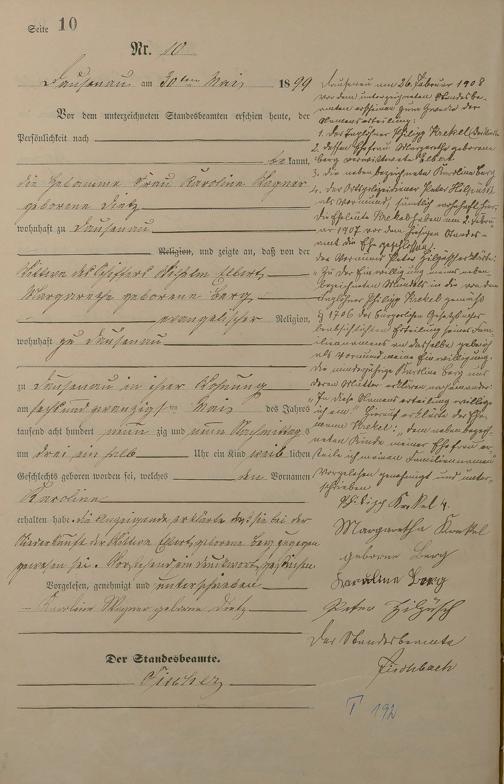 Seite 10
Nr. 10
Dausenau am 30ten Mai 1899
Vor dem unterzeichneten Standesbeamten erschien heute, der
Persönlichkeit nach
bekannt,
die Hebamme Frau Karoline Wagner
geborene Dietz
wohnhaft zu Dausenau
Religion, und zeigte an, daß von der
Wittwe des Schiffers Wilhelm Elbert,
Margarethe geborene Berg,
evangelischer Religion,
wohnhaft zu Dausenau
zu Dausenau in ihrer Wohnung
am sechsundzwanzigten Mai des Jahres
tausend acht hundert neunzig und neun Vormittags
um drei ein halb Uhr ein Kind weiblichen
Geschlechts geboren worden sei, welches den Vornamen
Karoline
erhalten habe. Die Anzeigende erklärte, daß sie bei der
Niederkunft der Wittwe Elbert, geborene Berg, zugegen
gewesen sei.
Vorgelesen, genehmigt und unterschrieben
Karoline Wagner geborene Dietz
Der Standesbeamte.
Fischer
Dausenau am 26. Februar 1908
Vor dem unterzeichneten Standesbe-
amten erschienen zum Zwecke der
Namenserteilung:
1. der Taglöhner Philipp Krekel
2. dessen Ehefrau Margarethe geborene
Berg verwittwete Elbert
3. die neben bezeichnete Karoline Berg
4. der Peter Hilgüsch
als Vormund, sämtlich wohnhaft hier.
Die Eheleute Krekel haben am 2. Febru-
ar 1907 vor dem hiesigen Standes-
amt die Ehe geschlossen.
Der Vormund Peter Hilgüsch
"Zu der Einwilligung meines neben
bezeichneten Mündels in die von dem
Taglöhner Philipp Krekel gemäß
§ 1706 des Bürgerlichen Gesetzbuches
beabsichtigten Erteilung seines Fami-
liennamens an dasselbe gebe ich
als Vormund meine Einwilligung.
die minderjährige Karoline Berg und
deren Mutter erklären nacheinander:
"In diese Namenserteilung willige
ich ein." Hierauf erklärte der Ehe-
mann Krekel: "dem neben bezeich-
neten Kinde meiner Ehefrau er-
teile ich meinen Familiennamen"
Vorgelesen genehmigt und unter-
schrieben
Philipp Krekel 4.
Margaretha Krekel
geborne Berg
Karoline Berg
Peter Hilgüsch
Der Standesbeamte
Fischbach
T 192